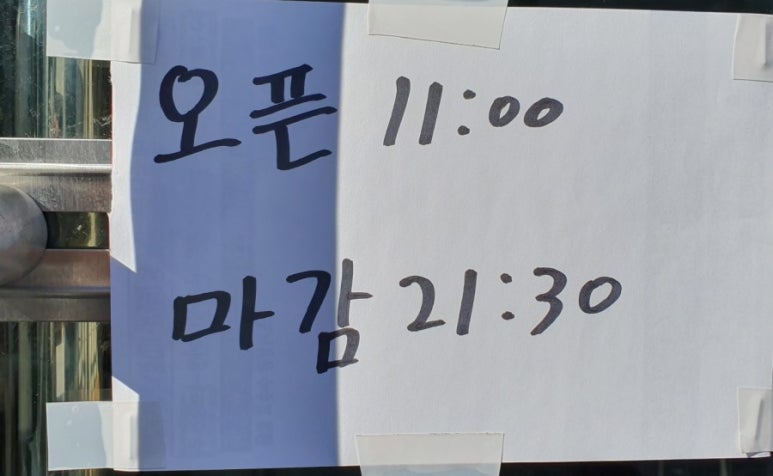 오픈 11:00
마감 21:30